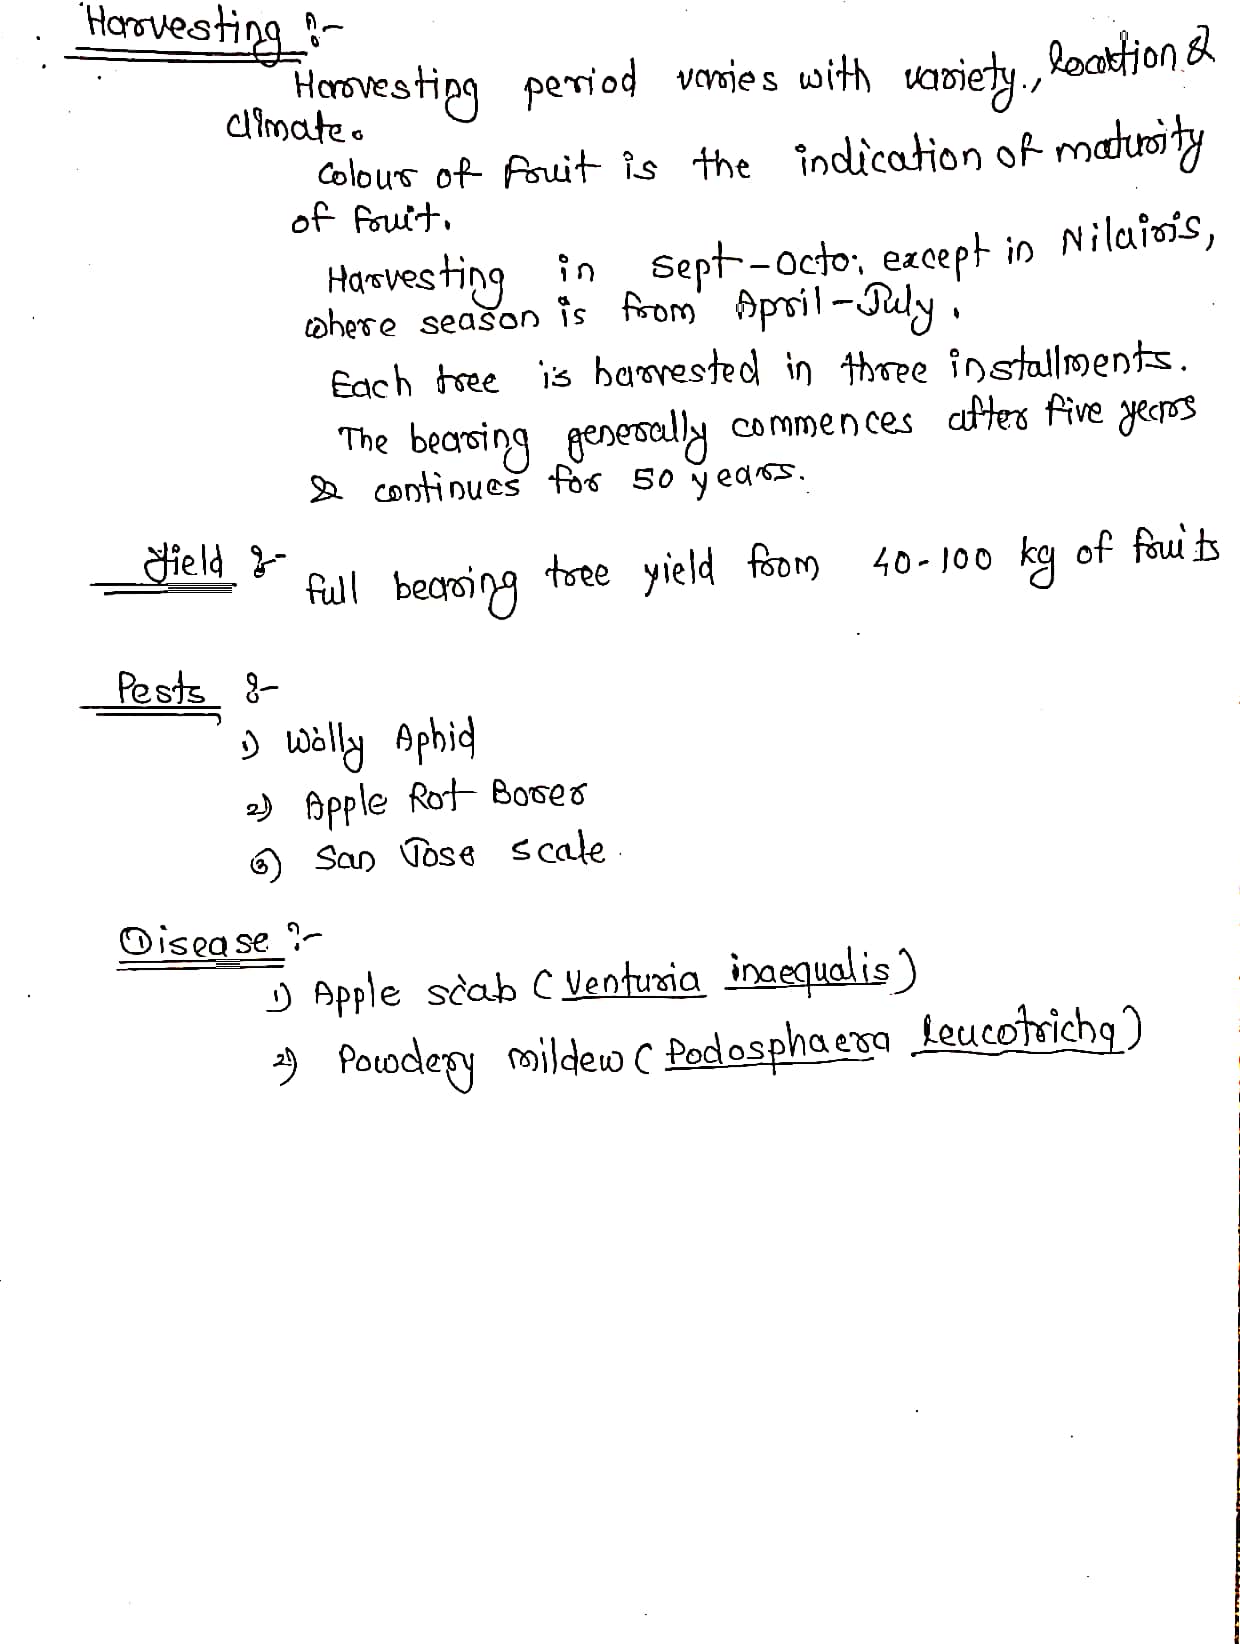 Harvesting :-
Harvesting period varies with variety., location &
climate.
Colour of fruit is the indication of maturity
of fruit.
Harvesting in Sept-Octo., except in Nilairis,
where season is from April-July.
Each tree is harvested in three installments.
The bearing generally commences after five years
& continues for 50 years.
Yield :-
full bearing tree yield from 40-100 kg of fruits
Pests :-
1) Wolly Aphid
2) Apple Rot Borer
③ San Jose scale.
Disease :-
1) Apple scab (Venturia inaequalis)
2) Powdery mildew (Podosphaera leucotricha)